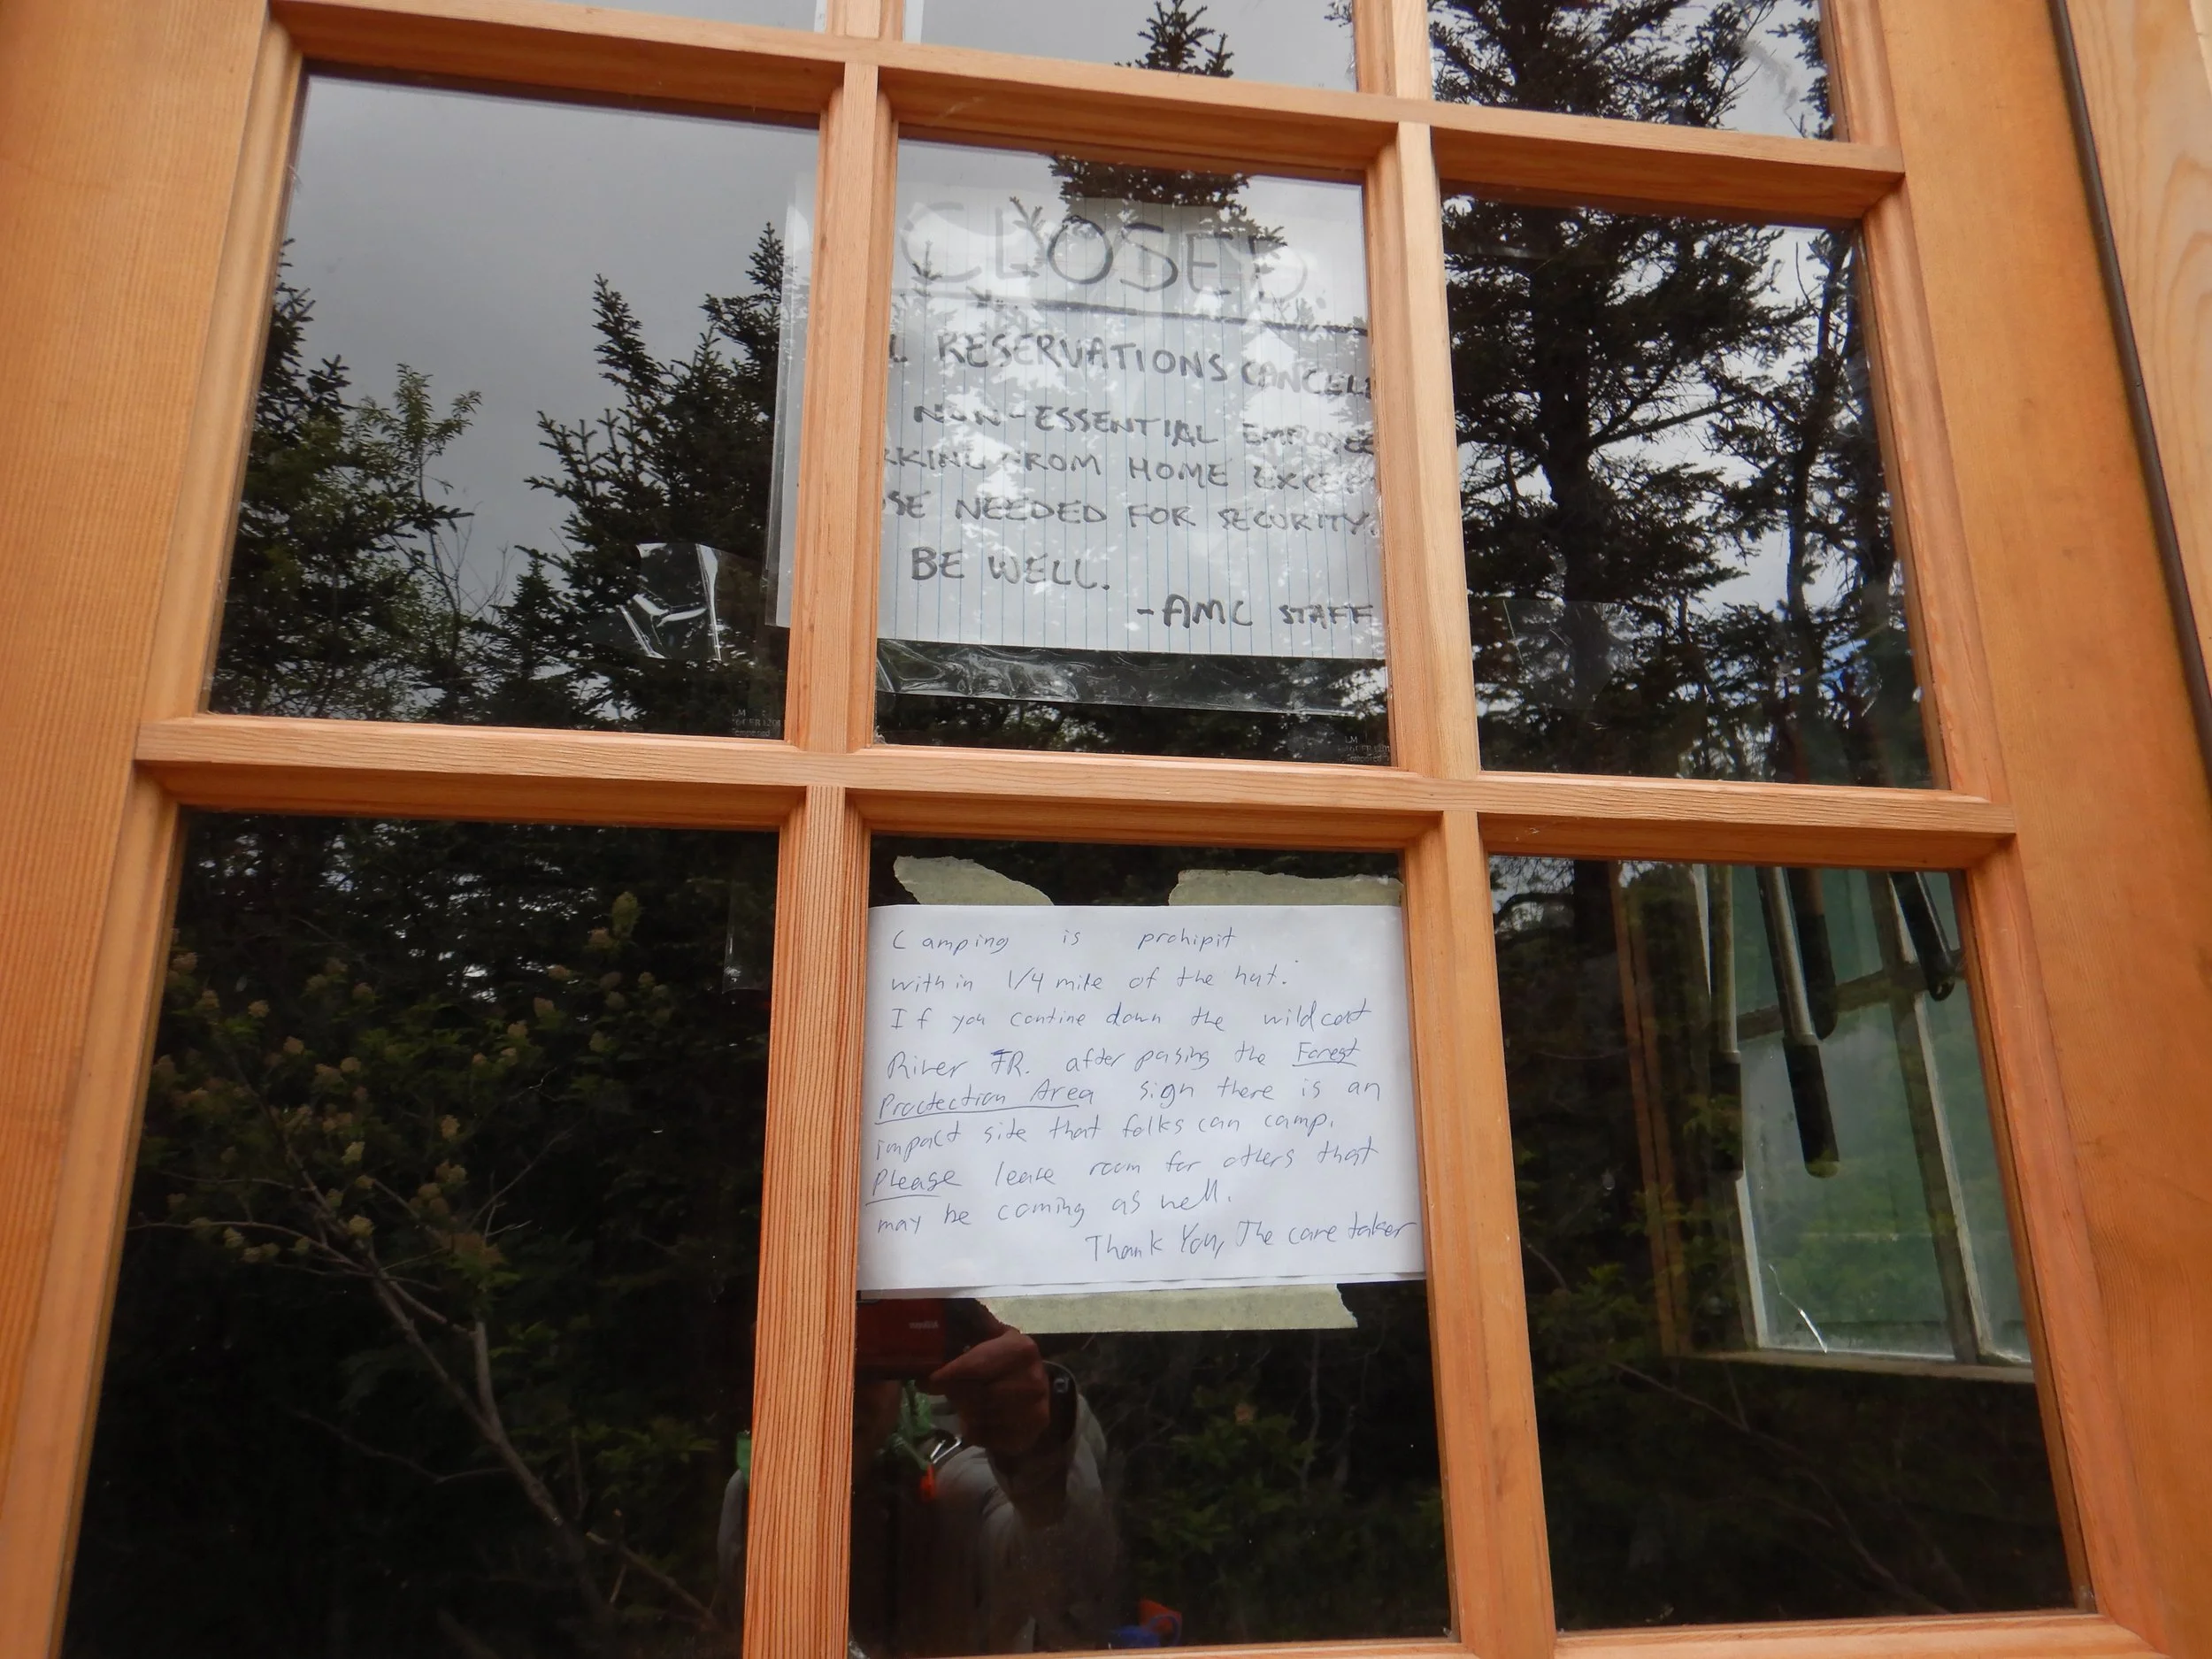 CLOSED.
L RESERVATIONS CANCELL
NON-ESSENTIAL EMPLOYEE
RKING FROM HOME EXCEPT
OSE NEEDED FOR SECURITY.
BE WELL.
-AMC STAFF
LM
Tempered
LM
Camping is prohipit
within 1/4 mile of the hut.
If you contine down the wildcat
River TR. after pasing the Forest
Practection Area sign there is an
impact site that folks can camp.
Please leave room for others that
may be coming as well.
Thank You, The care taker